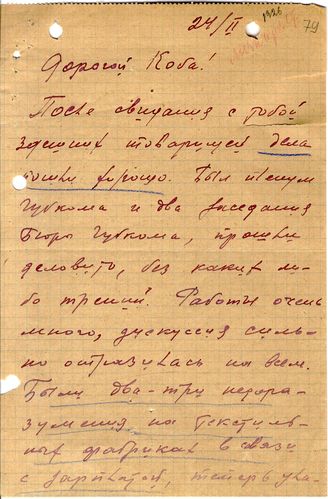 24/II
1926
79
Дорогой Коба!
После свидания с тобой
здешних товарищей дела
пошли хорошо. Был пленум
Губкома и два заседания
Бюро Губкома, прошли
деловито, без каких ли-
бо трений. Работы очень
много, дискуссия силь-
но отразилась на всем.
Были два-три недора-
зумения на текстиль-
ных фабриках в связи
с зарплатой, теперь ула-